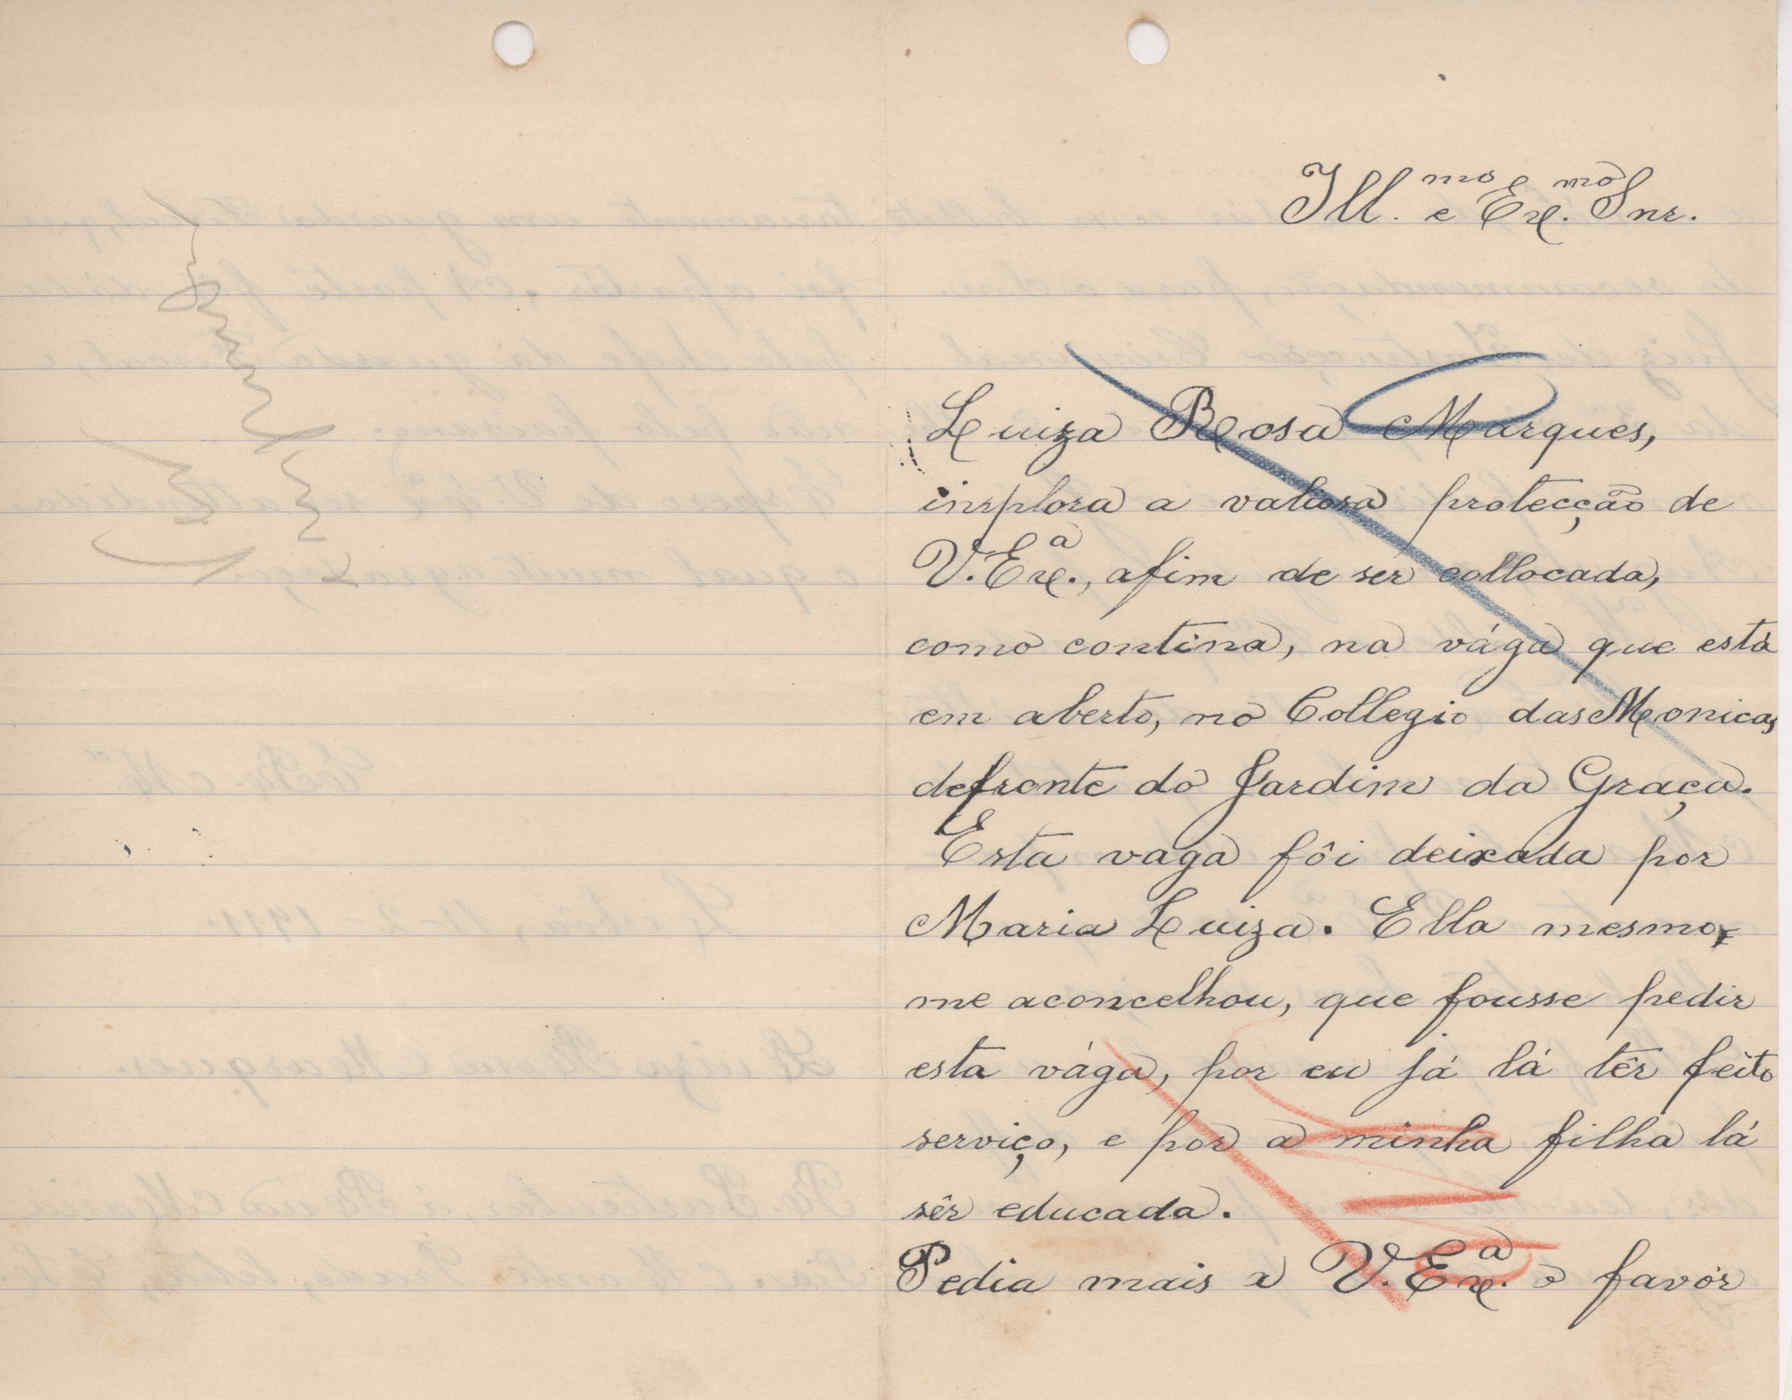 Ill.mo e Ex.mo Snr.
Luiza Rosa Marques,
inrplora a valiosa protecção de
V. Ex.a, afim de ser collocada,
como contina, na vága que está
em aberto, no Collegio das Monicas
defronte do Jardim da Graça.
Esta vaga fôi deixada por
Maria Luiza. Ella mesmo,
me aconcelhou, que fousse pedir
esta vága, por eu já lá têr feito
serviço, e por a minha filha lá
sêr educada.
Pedia mais a V. Ex.a o favôr